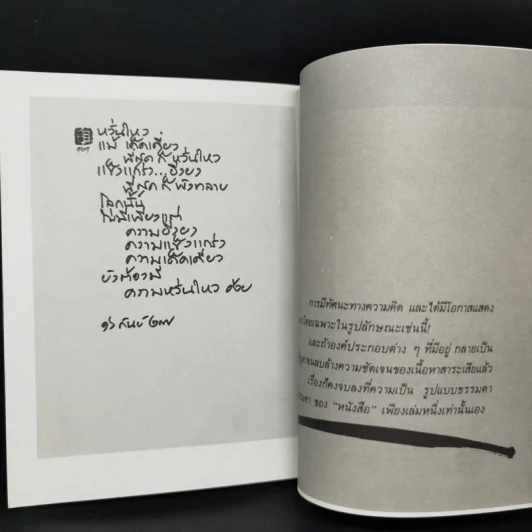 หวั่นไหว
แม้ เด็ดเดี่ยว
ที่สุด ก็ หวั่นไหว
แข็งแกร่ง...ยืนยง
ที่สุด ก็ พังทลาย
โลกนี้
ไม่มีเพียงแค่
ความยืนยง
ความแข็งแกร่ง
ความเด็ดเดี่ยว
ยังต้องมี
ความหวั่นไหว ด้วย
การมีทัศนะทางความคิด และได้มีโอกาสแสดง
โดยเฉพาะในรูปลักษณะเช่นนี้!
และถ้าองค์ประกอบต่าง ๆ ที่มีอยู่ กลายเป็น
จนลบล้างความชัดเจนของเนื้อหาสาระเสียแล้ว
เรื่องก็คงจบลงที่ความเป็น รูปแบบธรรมดา
ของ "หนังสือ" เพียงเล่มหนึ่งเท่านั้นเอง